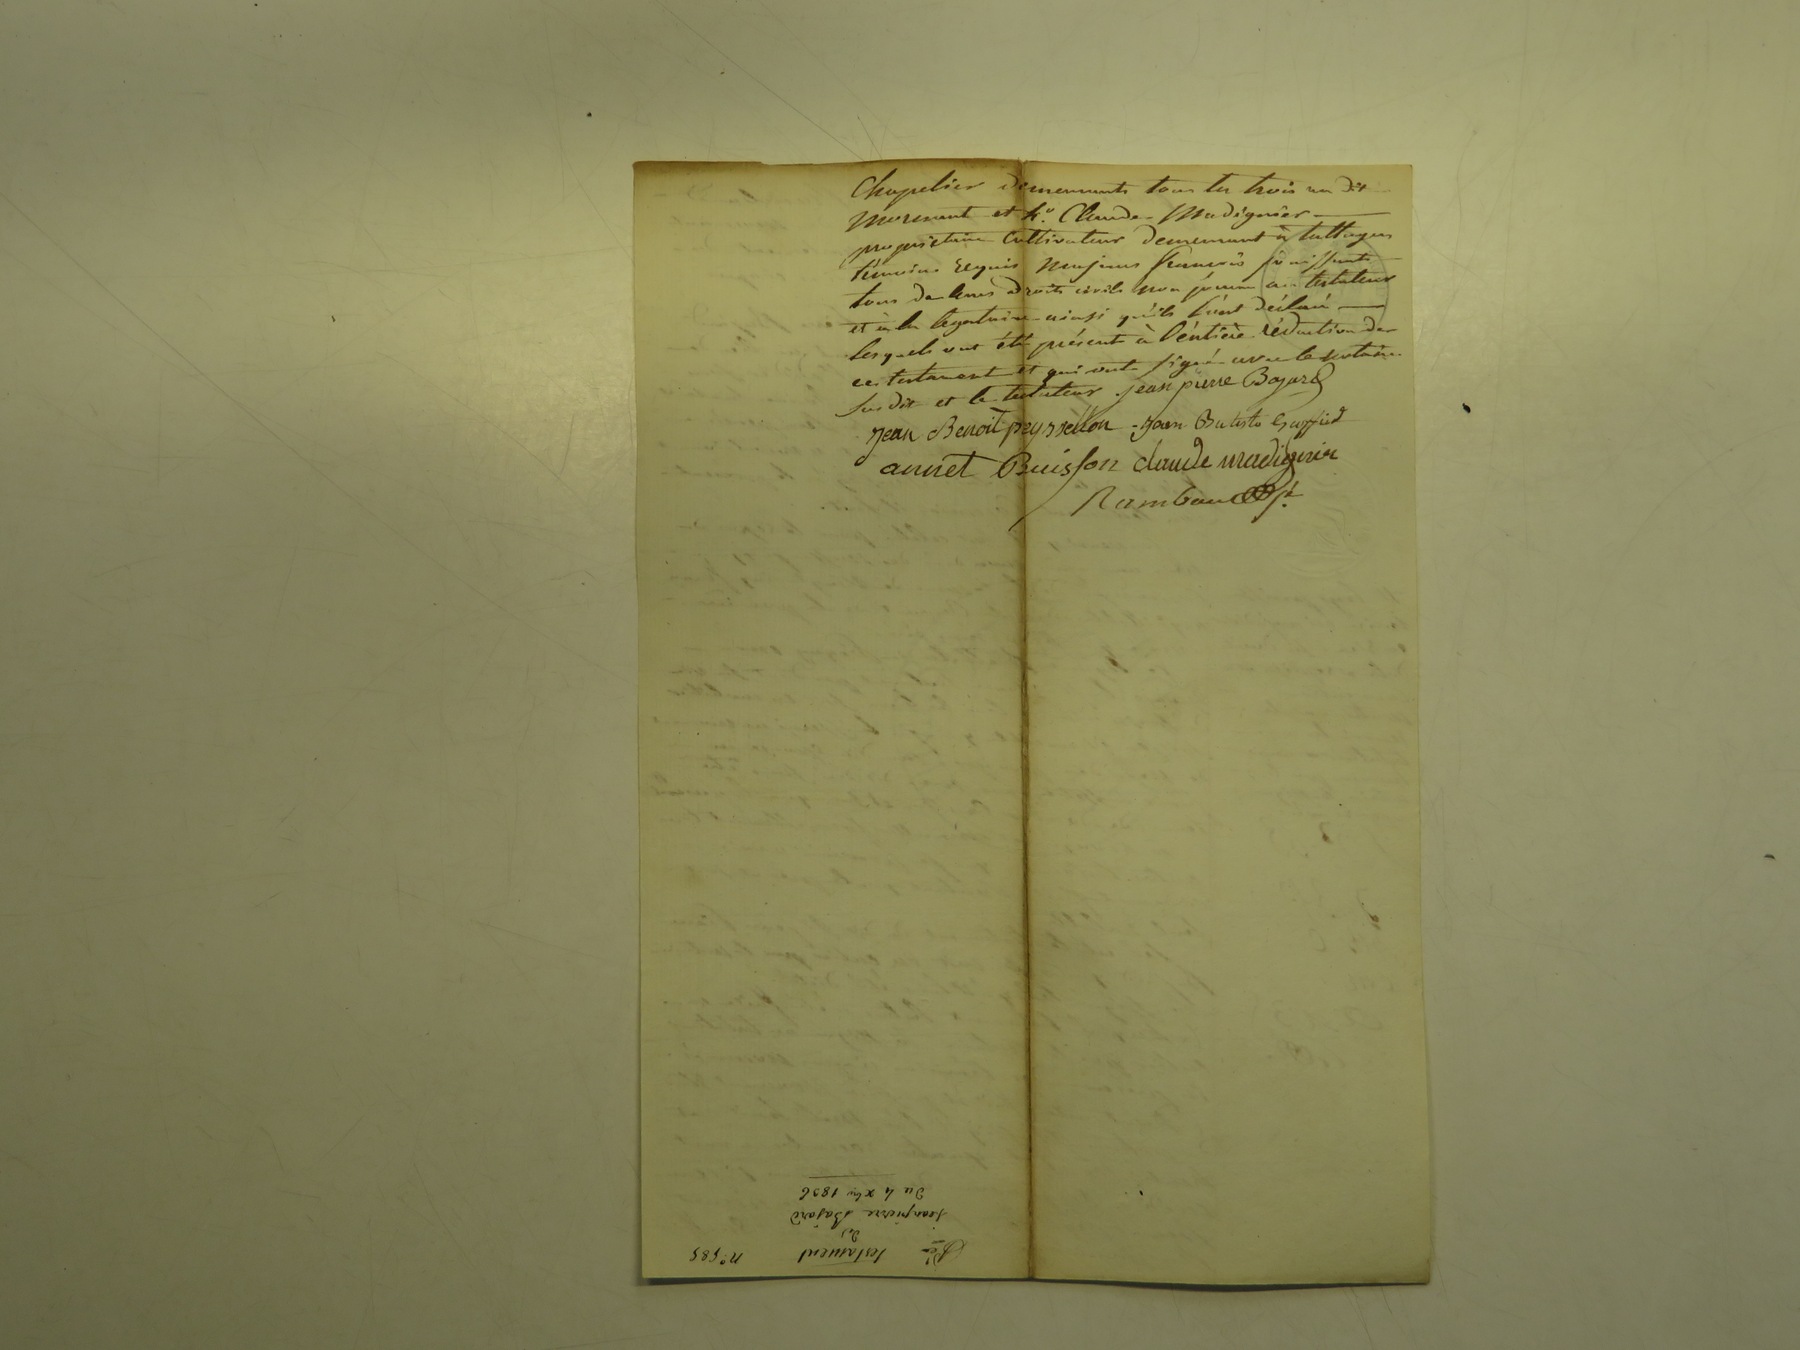 Chapelier demeurants tous les trois au dit
Mornant et 4°. Claude Madignier
propriétaire cultivateur demeurant à
témoins requis majeurs français jouissants
tous de leurs droits civils non parens au testateur
et à la légataire ainsi qu'ils l'ont déclaré
lesquels ont été présent à l'entière rédaction de
ce testament et qui ont signé avec le notaire
sus dit et le testateur. jean pierre Bajard
jean Benoit peyssellon jean Batiste
annet Buisson claude madignier
Rambaud
N° 585
testament
de
jeanpierre Bajard
Du 4 xbre 1836